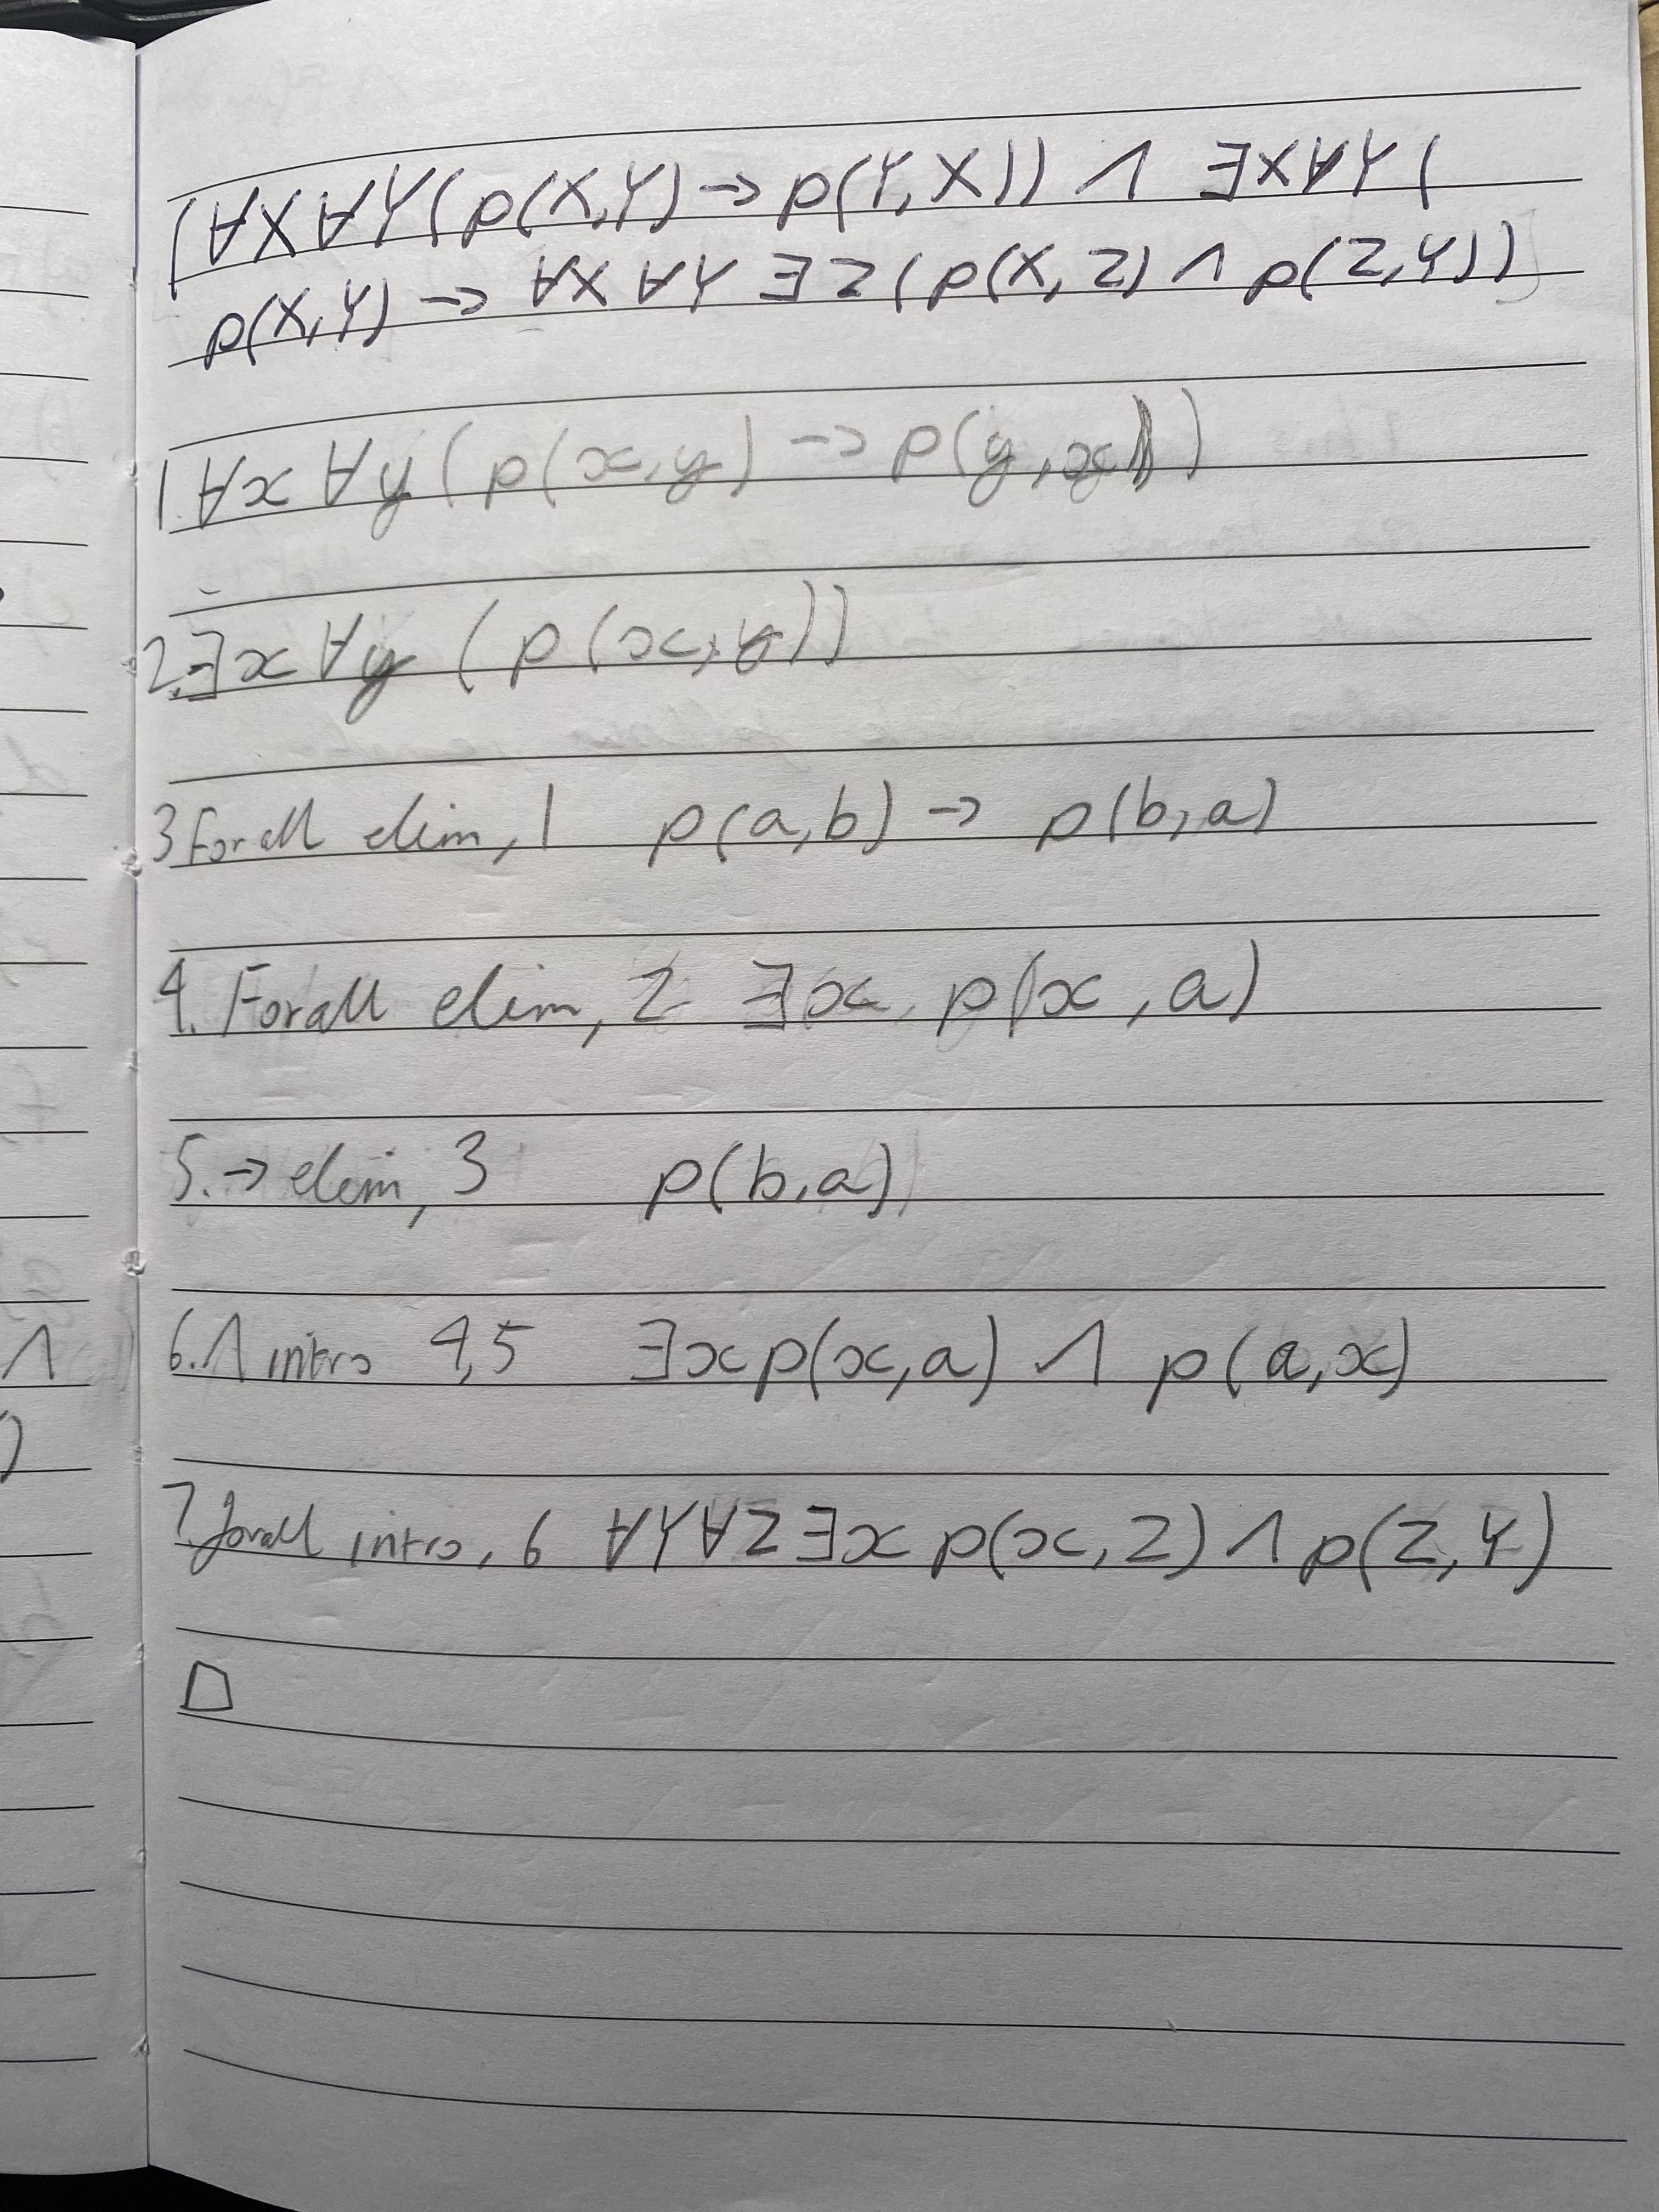 (∀X∀Y(p(X,Y)→p(Y,X)) ∧ ∃X∀Y(
p(X,Y)→ ∀X∀Y∃Z(p(X,Z)∧p(Z,Y))
1. ∀x∀y(p(x,y)→p(y,x))
2. ∃x∀y(p(x,y))
3 Forall elim, 1 p(a,b)→ p(b,a)
4. Forall elim, 2 ∃x p(x,a)
5. → elim, 3 p(b,a)
6. ∧ intro 4,5 ∃x p(x,a) ∧ p(a,x)
7. forall intro, 6 ∀Y∀Z∃x p(x,Z) ∧ p(Z,Y)
□